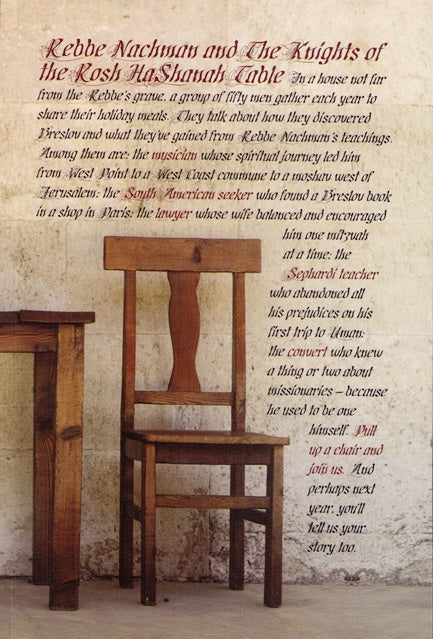 Rebbe Nachman and The Knights of
the Rosh HaShanah Table In a house not far
from the Rebbe's grave, a group of fifty men gather each year to
share their holiday meals. They talk about how they discovered
Breslov and what they've gained from Rebbe Nachman's teachings.
Among them are: the musician whose spiritual journey led him
from West Point to a West Coast commune to a moshav west of
Jerusalem; the South American seeker who found a Breslov book
in a shop in Paris; the lawyer whose wife balanced and encouraged
him one mitzvah
at a time; the
Sephardi teacher
who abandoned all
his prejudices on his
first trip to Uman;
the convert who knew
a thing or two about
missionaries – because
he used to be one
himself. Pull
up a chair and
join us. And
perhaps next
year, you'll
tell us your
story too.